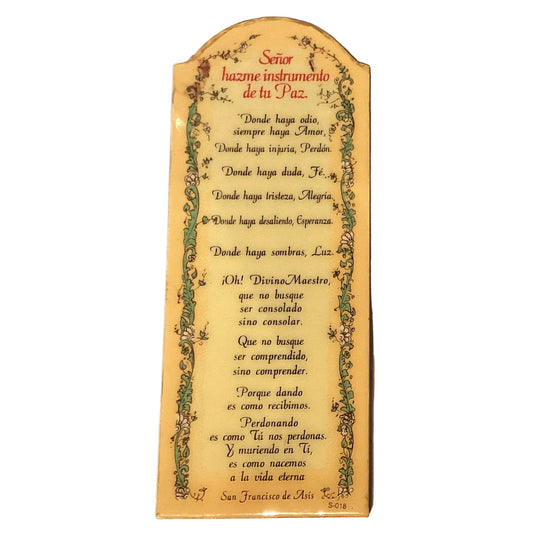 Señor
hazme instrumento
de tu Paz.
Donde haya odio,
siempre haya Amor,
Donde haya injuria, Perdón.
Donde haya duda, Fé.
Donde haya tristeza, Alegría.
Donde haya desaliento, Esperanza.
Donde haya sombras, Luz.
¡Oh! Divino Maestro,
que no busque
ser consolado
sino consolar.
Que no busque
ser comprendido,
sino comprender.
Porque dando
es como recibimos.
Perdonando
es como Tú nos perdonas.
Y, muriendo en Ti,
es como nacemos
a la vida eterna
San Francisco de Asis
S-018